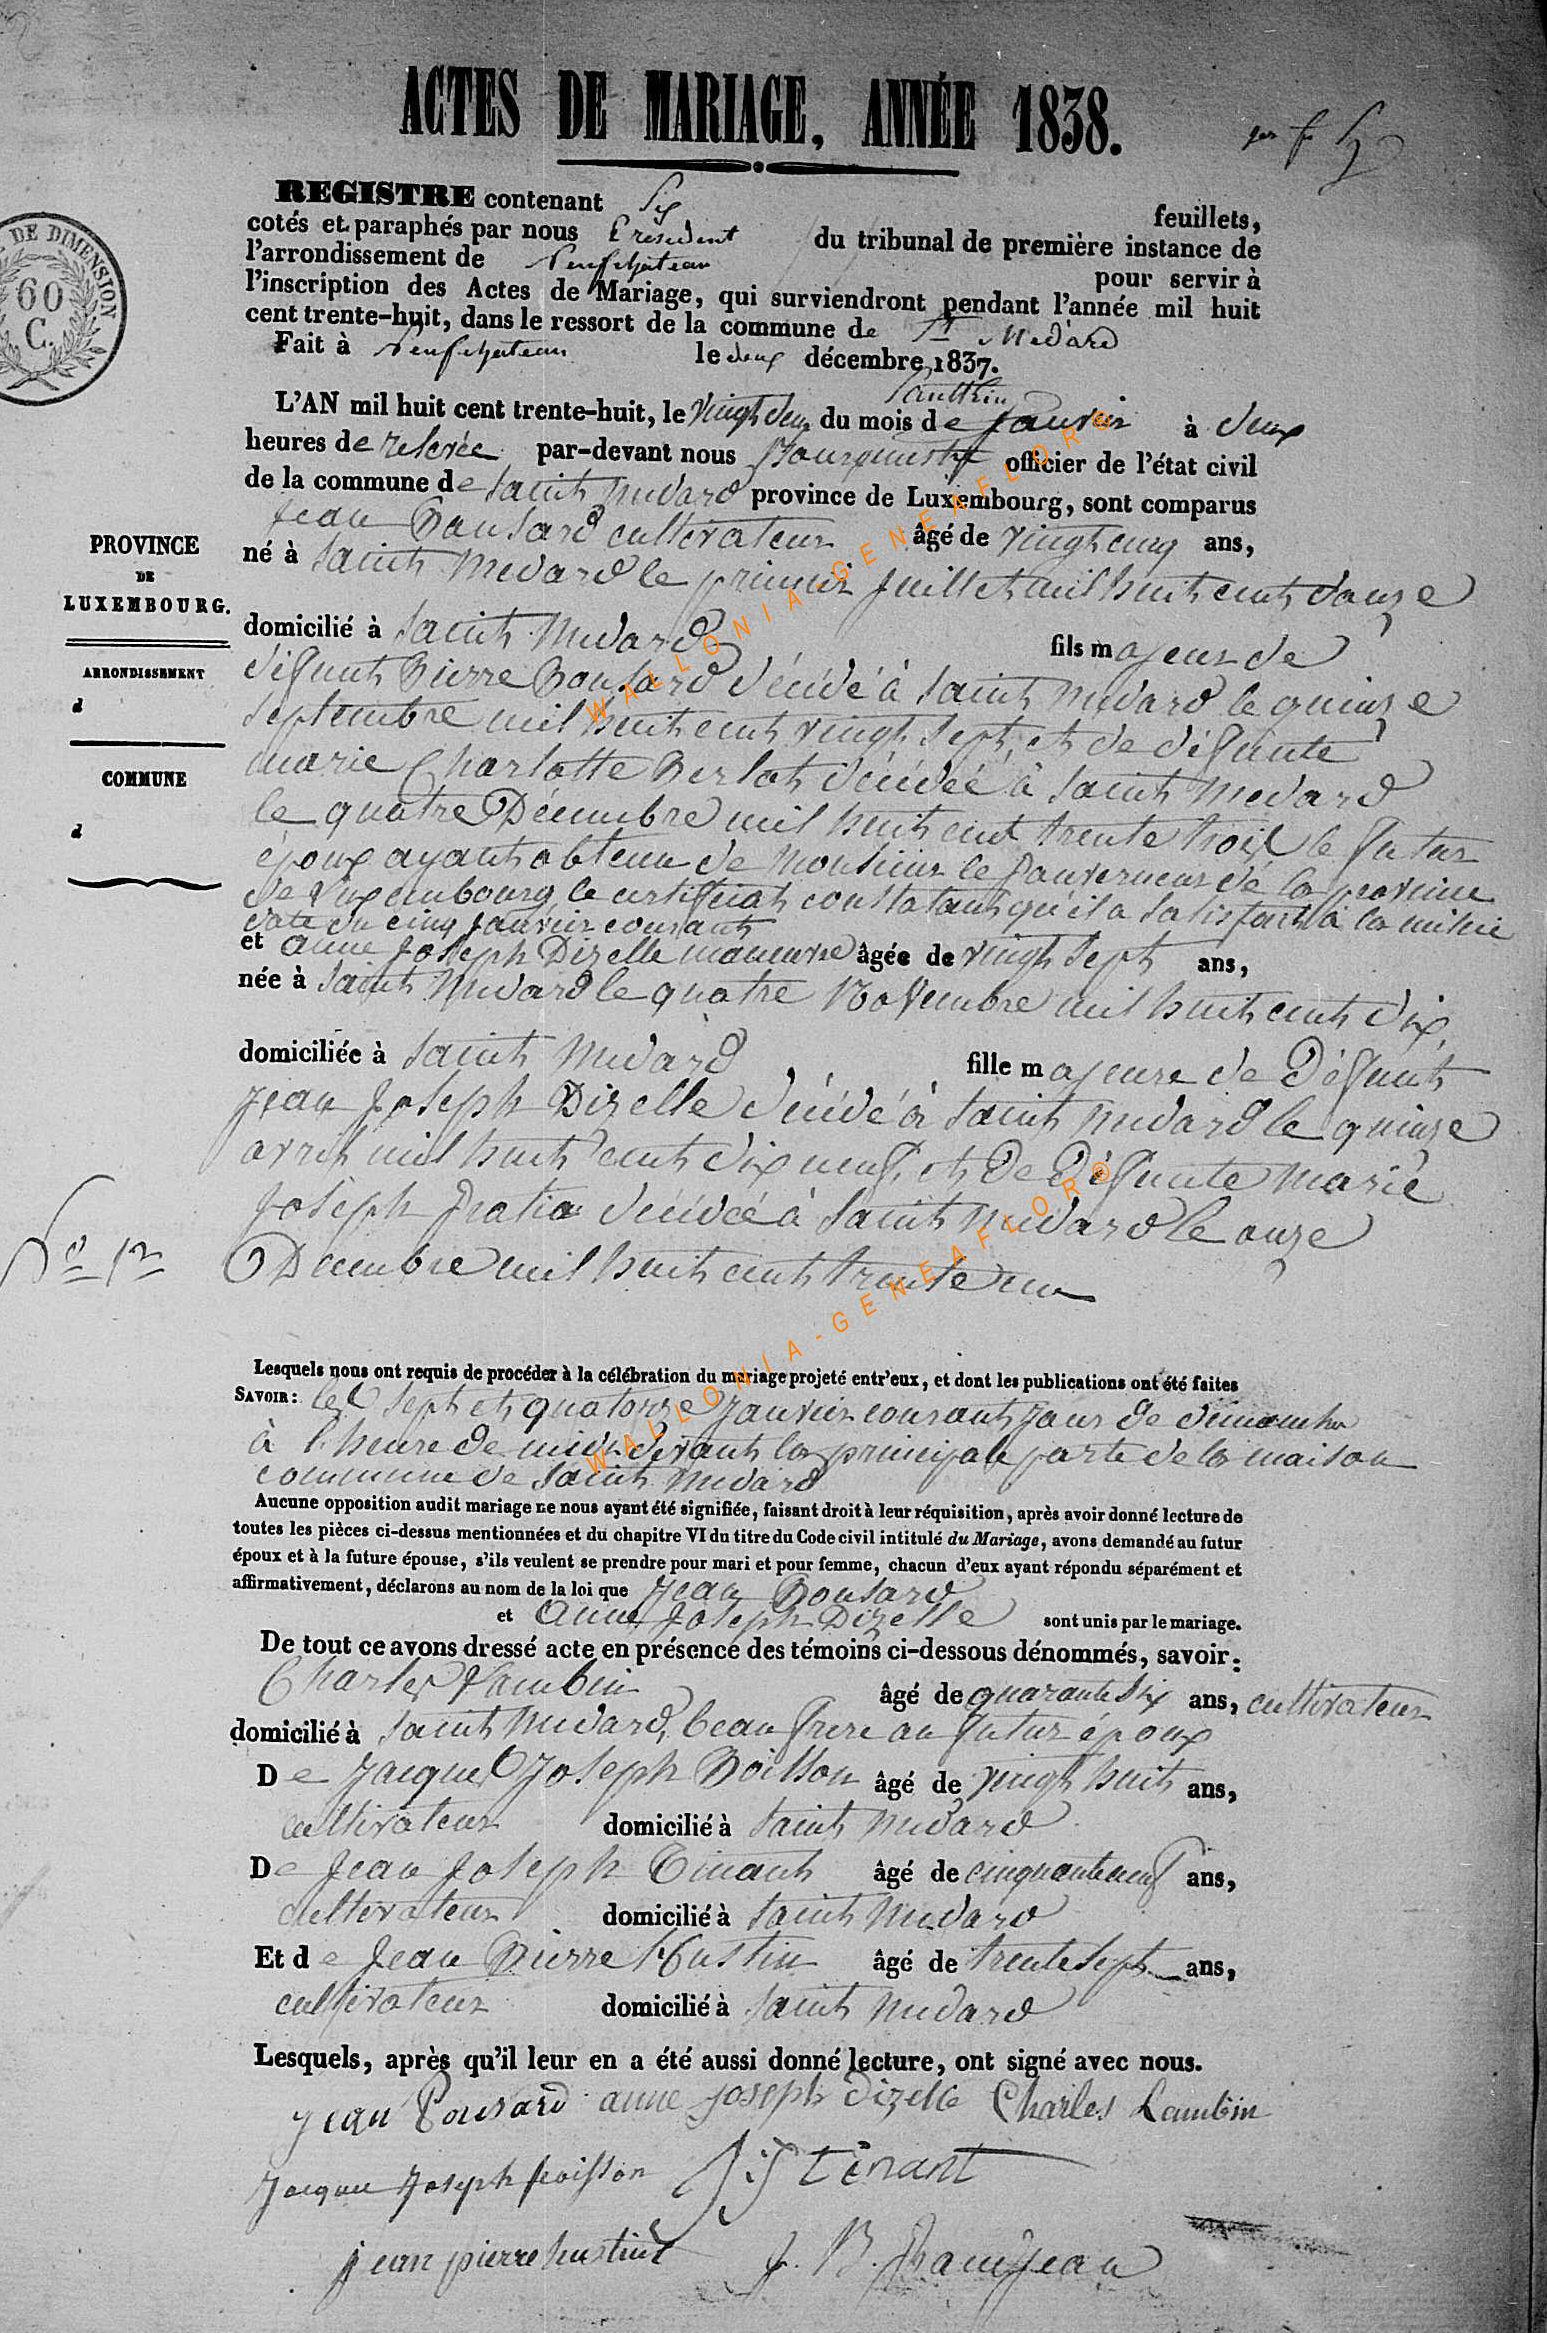 ACTES DE MARIAGE, ANNÉE 1838.
REGISTRE contenant Six feuillets,
cotés et paraphés par nous Président du tribunal de première instance de
l'arrondissement de Neufchateau pour servir à
l'inscription des Actes de Mariage, qui surviendront pendant l'année mil huit
cent trente-huit, dans le ressort de la commune de St Médard
Fait à Neufchateau le deux décembre 1837.
DE DIMENSION
60
C.
L'AN mil huit cent trente-huit, le vingt deux du mois de Janvier à deux
heures de relevée par-devant nous Bourguestre officier de l'état civil
de la commune de Saint Médard province de Luxembourg, sont comparus
Jean Ponsard cultivateur âgé de vingt cinq ans,
né à Saint Médard le premier Juillet mil huit cent douze
domicilié à Saint Médard fils majeur de
défunt Pierre Ponsard décédé à Saint Médard le quinze
Septembre mil huit cent vingt Sept, et de défunte
marie Charlotte Perlot décédée à Saint Médard
le quatre Décembre mil huit cent trente trois le futur
époux ayant obtenu de Monsieur le Gouverneur de la province
de Luxembourg le certificat constatant qu'il a satisfait à la milice
date du cinq Janvier courant
et anne Joseph Dizelle manœuvre âgée de vingt Sept ans,
née à Saint Médard le quatre Novembre mil huit cent dix
domiciliée à Saint Médard fille majeure de Défunt
Jean Joseph Dizelle décédé à Saint Médard le quinze
avril mil huit cent dix neuf, et de Défunte Marie
Joseph décédée à Saint Médard le onze
Decembre mil huit cent trente un
PROVINCE
DE
LUXEMBOURG.
ARRONDISSEMENT
d
COMMUNE
d
No 1er
Lesquels nous ont requis de procéder à la célébration du mariage projeté entr'eux, et dont les publications ont été faites
SAVOIR: les sept et quatorze Janvier courant Jour de dimanche
à l'heure de midi devant la principale porte de la maison
commune de Saint Médard
Aucune opposition audit mariage ne nous ayant été signifiée, faisant droit à leur réquisition, après avoir donné lecture de
toutes les pièces ci-dessus mentionnées et du chapitre VI du titre du Code civil intitulé du Mariage, avons demandé au futur
époux et à la future épouse, s'ils veulent se prendre pour mari et pour femme, chacun d'eux ayant répondu séparément et
affirmativement, déclarons au nom de la loi que Jean Ponsard
et Anne Joseph Dizelle sont unis par le mariage.
De tout ce avons dressé acte en présence des témoins ci-dessous dénommés, savoir:
Charles Lambin âgé de quarante six ans, cultivateur
domicilié à Saint Médard, beau frere au futur époux
De Jacques Joseph Poisson âgé de vingt huit ans,
cultivateur domicilié à Saint Médard
De Jean Joseph Tinant âgé de cinquante neuf ans,
cultivateur domicilié à Saint Médard
Et de Jean Pierre Hustin âgé de trente sept ans,
cultivateur domicilié à Saint Médard
Lesquels, après qu'il leur en a été aussi donné lecture, ont signé avec nous.
Jean Ponsard anne joseph dizelle Charles Lambin
Jacque Joseph poisson J: J Tinant
jean pierre hustin J. B.
WALLONIA-GENEAFLOR©
WALLONIA-GENEAFLOR©